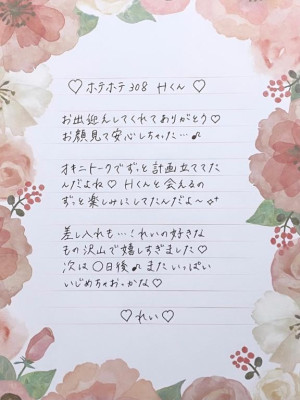 ♡ホテホテ308 Hくん♡
お出迎えしてくれてありがとう♡
お顔見て安心しちゃた…♪
オキニトークでずっと計画立ててた
んだよね♡ Hくんと会えるの
ずっと楽しみにしてたんだよ〜✧⁺
差し入れも…！れいの好きな
もの沢山で嬉しすぎました♡
次は〇日後♪また いっぱい
いじめちゃおっかな♡
♡れい♡